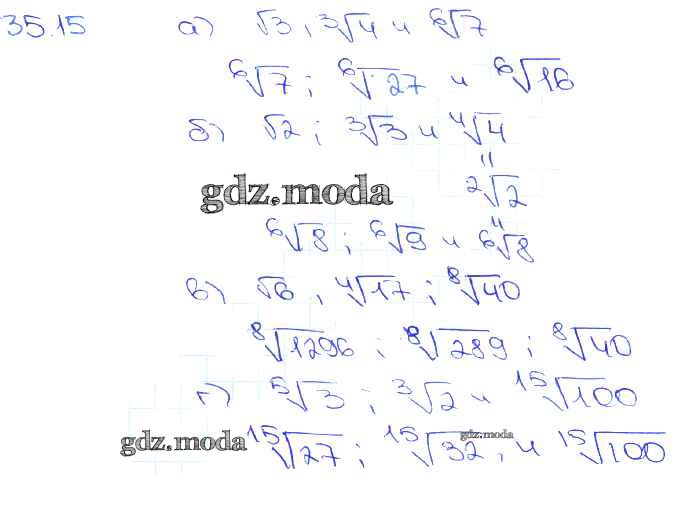 35.15 а) √3, ³√4 и ⁶√7
⁶√7; ⁶√27 и ⁶√16
б) √2; ³√3 и ⁴√4
"
gdz.moda ²√2
"
⁶√8; ⁶√9 и ⁶√8
в) √6, ⁴√17; ⁸√40
⁸√1296; ⁸√289; ⁸√40
г) ⁵√3; ³√2 и ¹⁵√100
gdz.moda ¹⁵√27; ¹⁵√32, и ¹⁵√100
gdz.moda